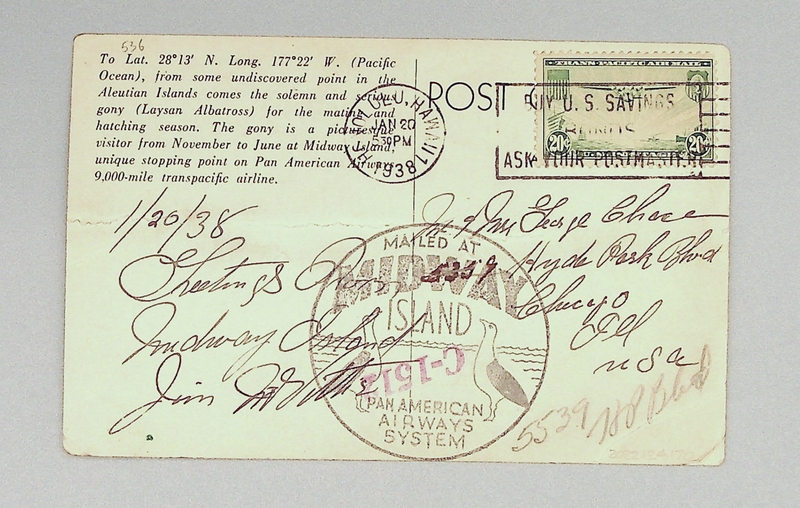 536
To Lat. 28°13' N. Long. 177°22' W. (Pacific
Ocean), from some undiscovered point in the
Aleutian Islands comes the solemn and serious
gony (Laysan Albatross) for the mating and
hatching season. The gony is a picturesque
visitor from November to June at Midway Island,
unique stopping point on Pan American Airways
9,000-mile transpacific airline.
POST
HONOLULU, HAWAII
JAN 20
30PM
1938
BUY U.S. SAVINGS
BONDS
ASK YOUR POSTMASTER
TRANS-PACIFIC AIR MAIL
20¢ 20¢
1/20/38
Greetings From
Midway Island
Jim
Mr & Mrs George Chace
5359 Hyde Park Blvd
Chicago
Ill
USA
MAILED AT
MIDWAY
ISLAND
C-151
PAN AMERICAN
AIRWAYS
SYSTEM
5539 HP Blvd